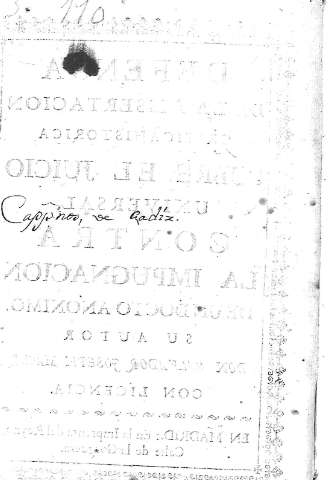 110
DEFENSA
DE LA DISSERTACION
CRITICA HISTORICA
SOBRE EL JUICIO
UNIVERSAL,
Capp.nos, de Cadiz.
CONTRA
LA IMPUGNACION
DE UN DOCTO ANONIMO.
SU AUTOR
DON SALVADOR JOSEPH
CON LICENCIA.
EN MADRID: en la Imprenta
Calle de la